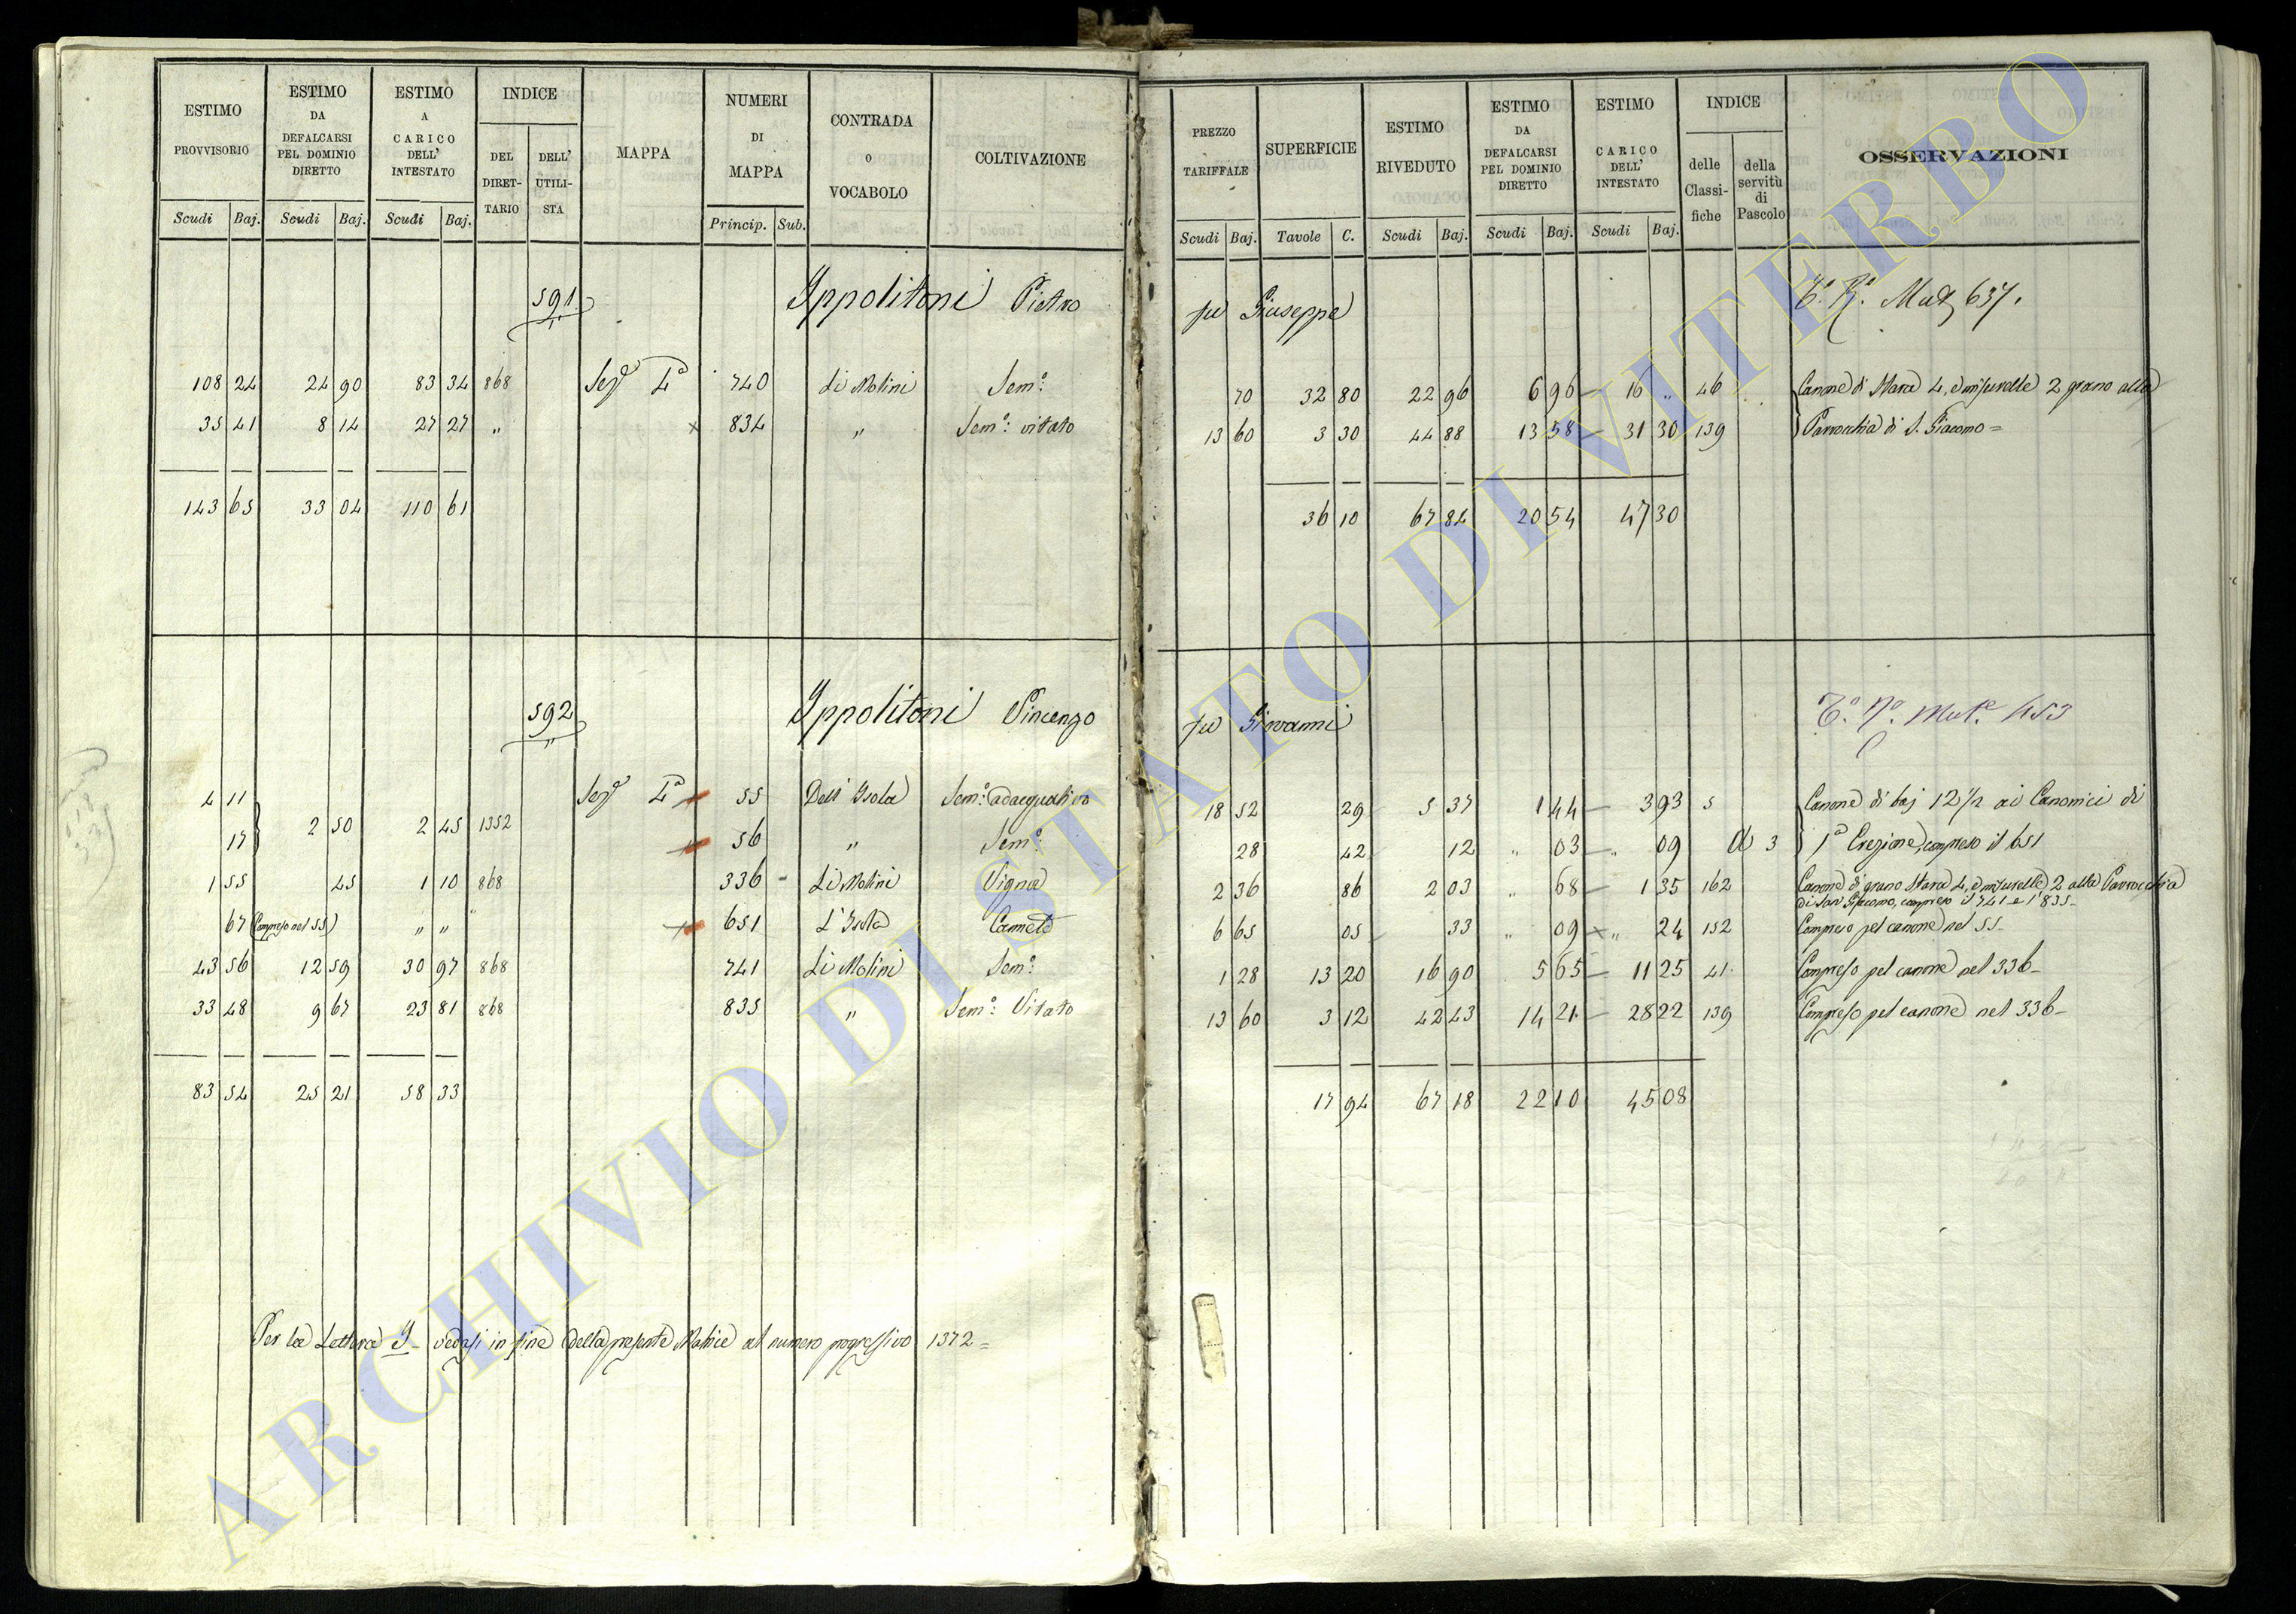 ESTIMO PROVVISORIO | ESTIMO DA DEFALCARSI PEL DOMINIO DIRETTO | ESTIMO A CARICO DELL' INTESTATO | INDICE | MAPPA | NUMERI DI MAPPA | CONTRADA O VOCABOLO | COLTIVAZIONE
DEL DIRETTARIO | DELL' UTILISTA
Scudi | Baj. | Scudi | Baj. | Scudi | Baj. | Princip. | Sub.
591 Ippolitoni Pietro
108 24 | 24 90 | 83 34 | 868 | Sez.e 4a | 740 | Li Molini | Sem.o
35 41 | 8 14 | 27 27 | " | x 834 | " | Sem.o vitato
143 65 | 33 04 | 110 61
592 Ippolitoni Vincenzo
4 11 | 2 50 | 2 45 | 1352 | Sez.e 4a | 55 | Dell' Isola | Sem.o adacquativo
17 | 56 | " | Sem.o
1 55 | 45 | 1 10 | 868 | 336 | Li Molini | Vigna
67 | (Compreso nel 55) | " " | 651 | L'Isola | Canneto
43 56 | 12 59 | 30 97 | 868 | 741 | Li Molini | Sem.o
33 48 | 9 67 | 23 81 | 868 | 835 | " | Sem.o Vitato
83 54 | 25 21 | 58 33
Per la Lettera I vedasi in fine della presente Matrice al numero progressivo 1372 =
PREZZO TARIFFALE | SUPERFICIE | ESTIMO RIVEDUTO | ESTIMO DA DEFALCARSI PEL DOMINIO DIRETTO | ESTIMO A CARICO DELL' INTESTATO | INDICE | OSSERVAZIONI
delle Classifiche | della servitù di Pascolo
Scudi | Baj. | Tavole | C. | Scudi | Baj. | Scudi | Baj. | Scudi | Baj.
fu Giuseppe
637.
70 | 32 80 | 22 96 | 6 96 | 16 " | 46 | Canone di Stara 4, e misurelle 2 grano alla
13 60 | 3 30 | 44 88 | 13 58 | 31 30 | 139 | Parrocchia di S. Giacomo =
36 10 | 67 84 | 20 54 | 47 30
fu Giovanni
453
18 52 | 29 | 5 37 | 1 44 | 3 93 | 5 | Canone di baj 12 1/2 ai Canonici di
28 | 42 | 12 | " 03 | " 09 | 3 | 1a Erezione, compreso il 651
2 36 | 86 | 2 03 | " 68 | 1 35 | 162 | Canone di grano Stara 4, e misurelle 2 alla Parrocchia
di San Giacomo, compreso il 741 e l'835
6 65 | 05 | 33 | " 09 | " 24 | 152 | Compreso pel canone nel 55
1 28 | 13 20 | 16 90 | 5 65 | 11 25 | 41 | Compreso pel canone nel 336
13 60 | 3 12 | 42 43 | 14 21 | 28 22 | 139 | Compreso pel canone nel 336
17 94 | 67 18 | 22 10 | 45 08
ARCHIVIO DI STATO DI VITERBO